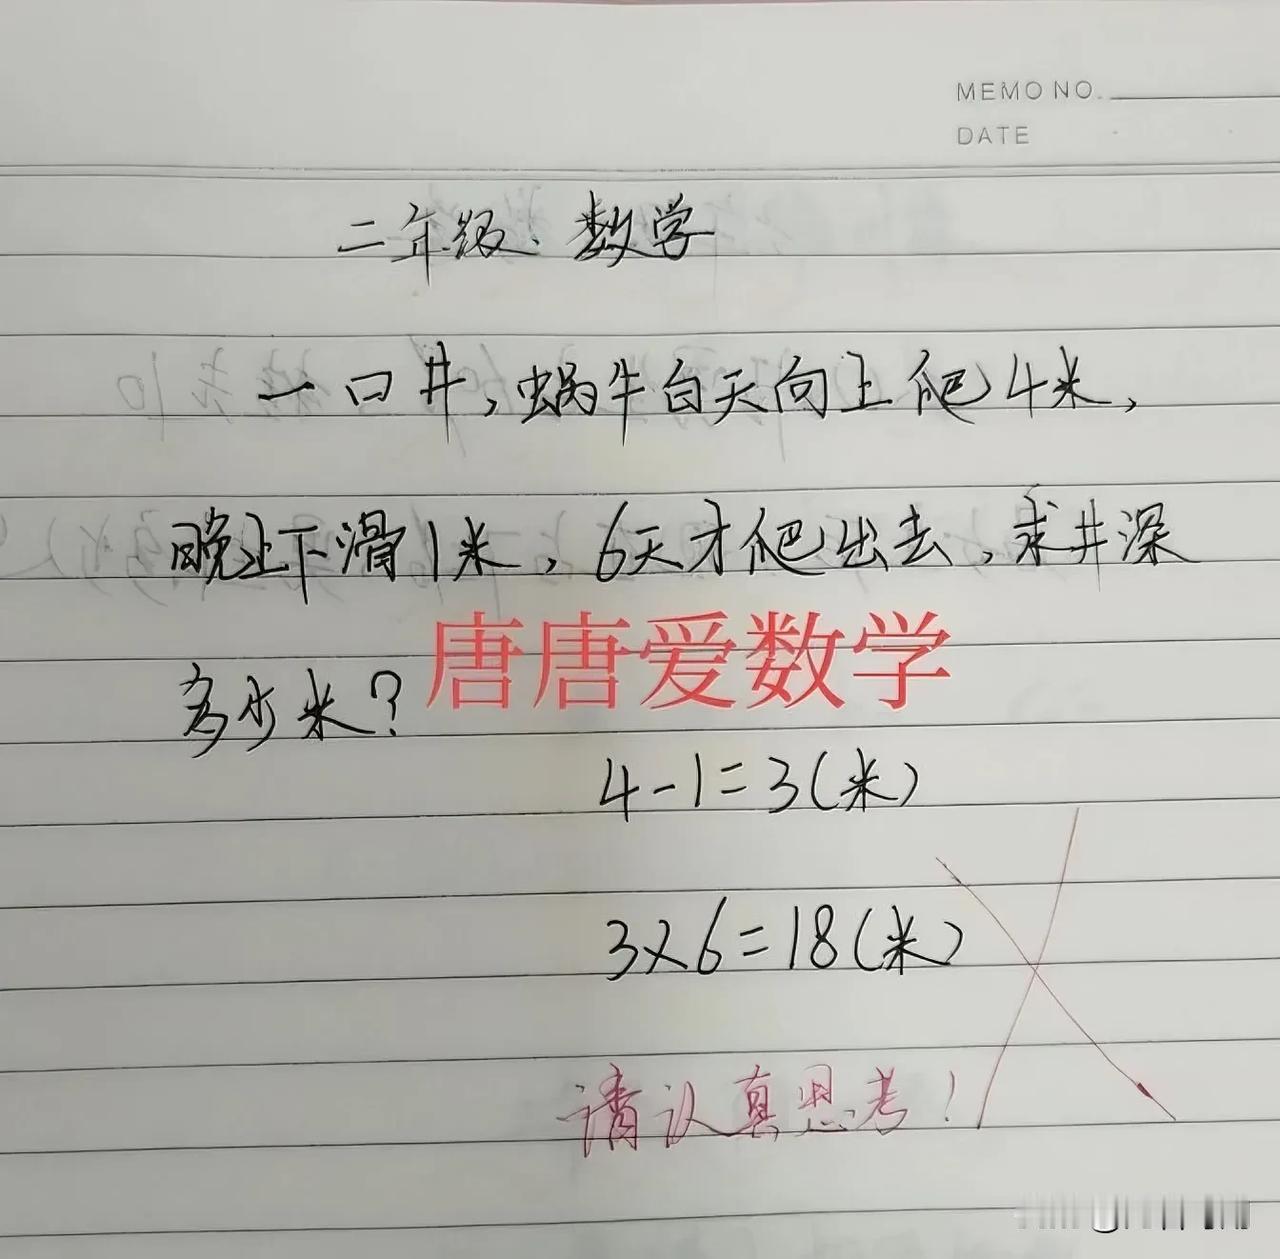 MEMO NO.
DATE
二年级：数学
一口井，蜗牛白天向上爬4米，
晚上下滑1米，6天才爬出去，求井深
多少米？
唐唐爱数学
4-1=3(米)
3×6=18(米)
请认真思考！